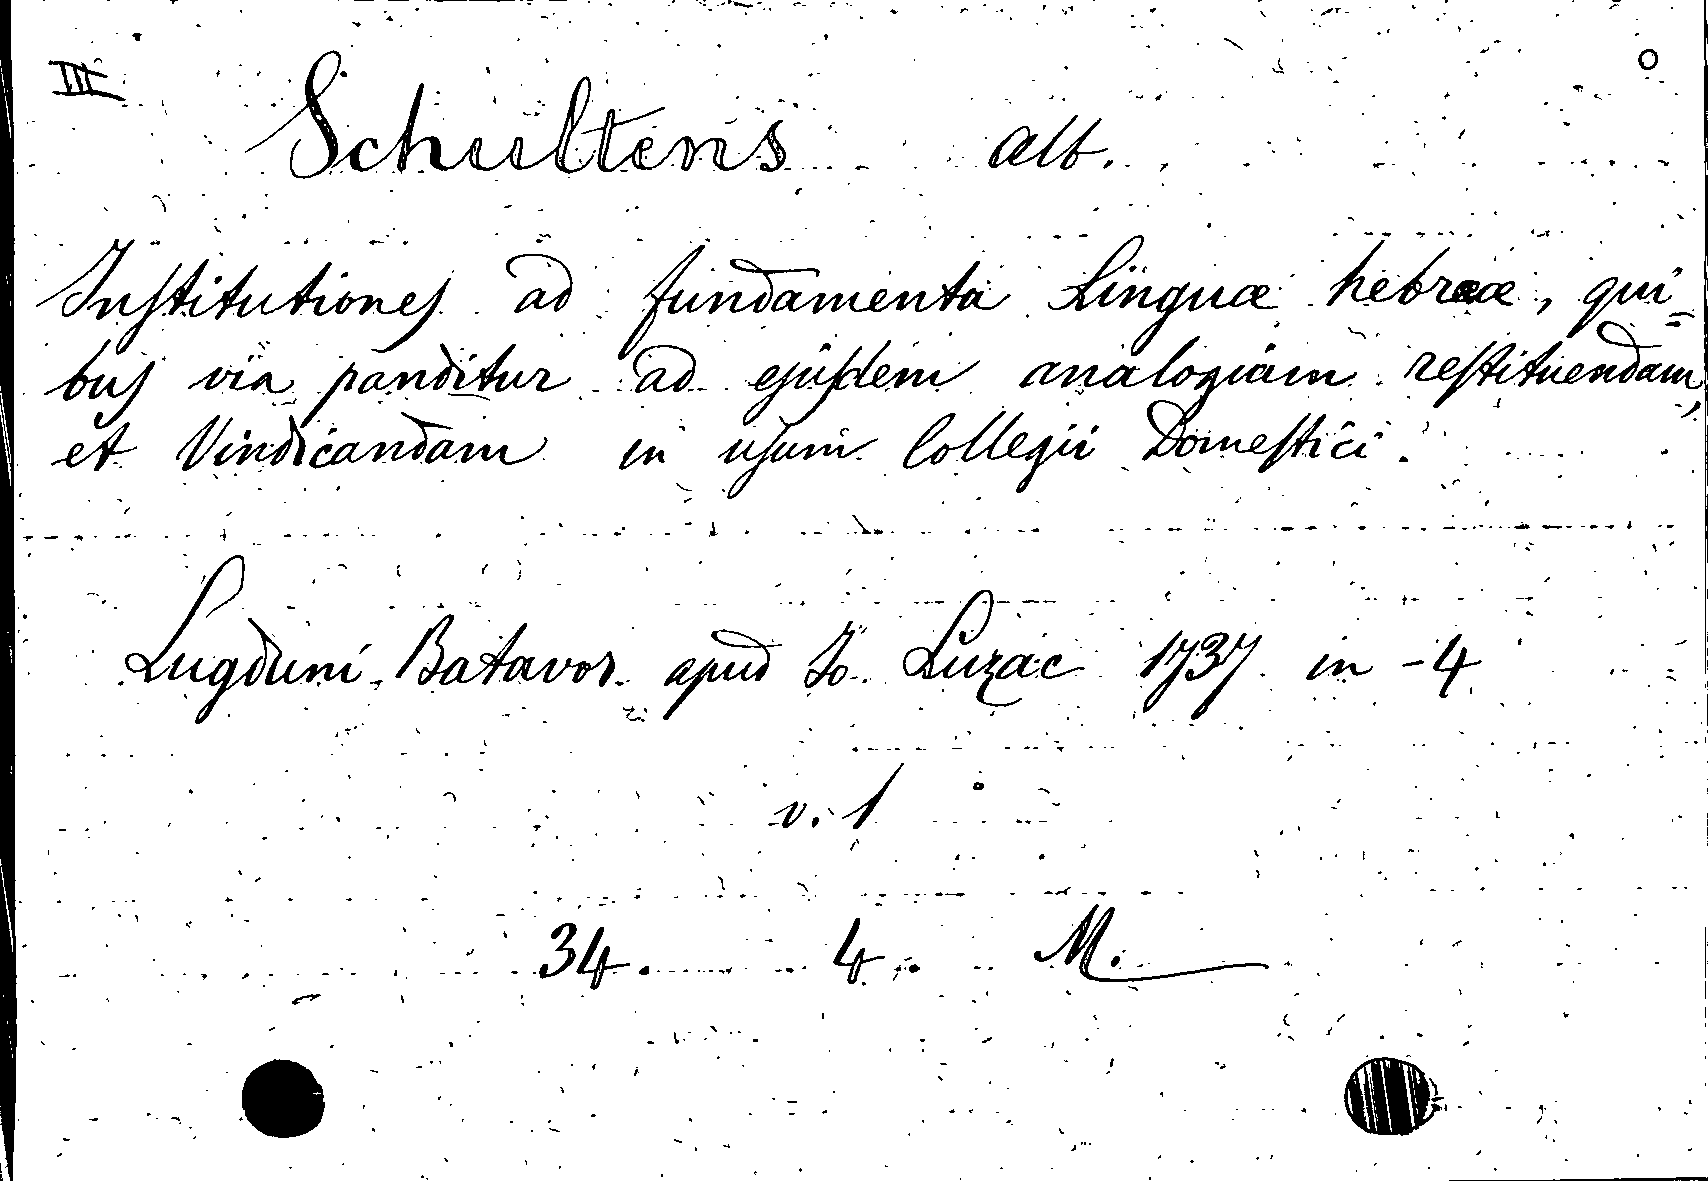 III
Schultens alb.
Institutiones ad fundamenta Linguæ hebrææ, qui=
bus via panditur ad ejusdem analogiam restituendam,
et Vindicandam in usum Collegii Domestici.
Lugduni Batavor. apud Jo. Luzac 1737 in-4
v. 1
34. 4. M.